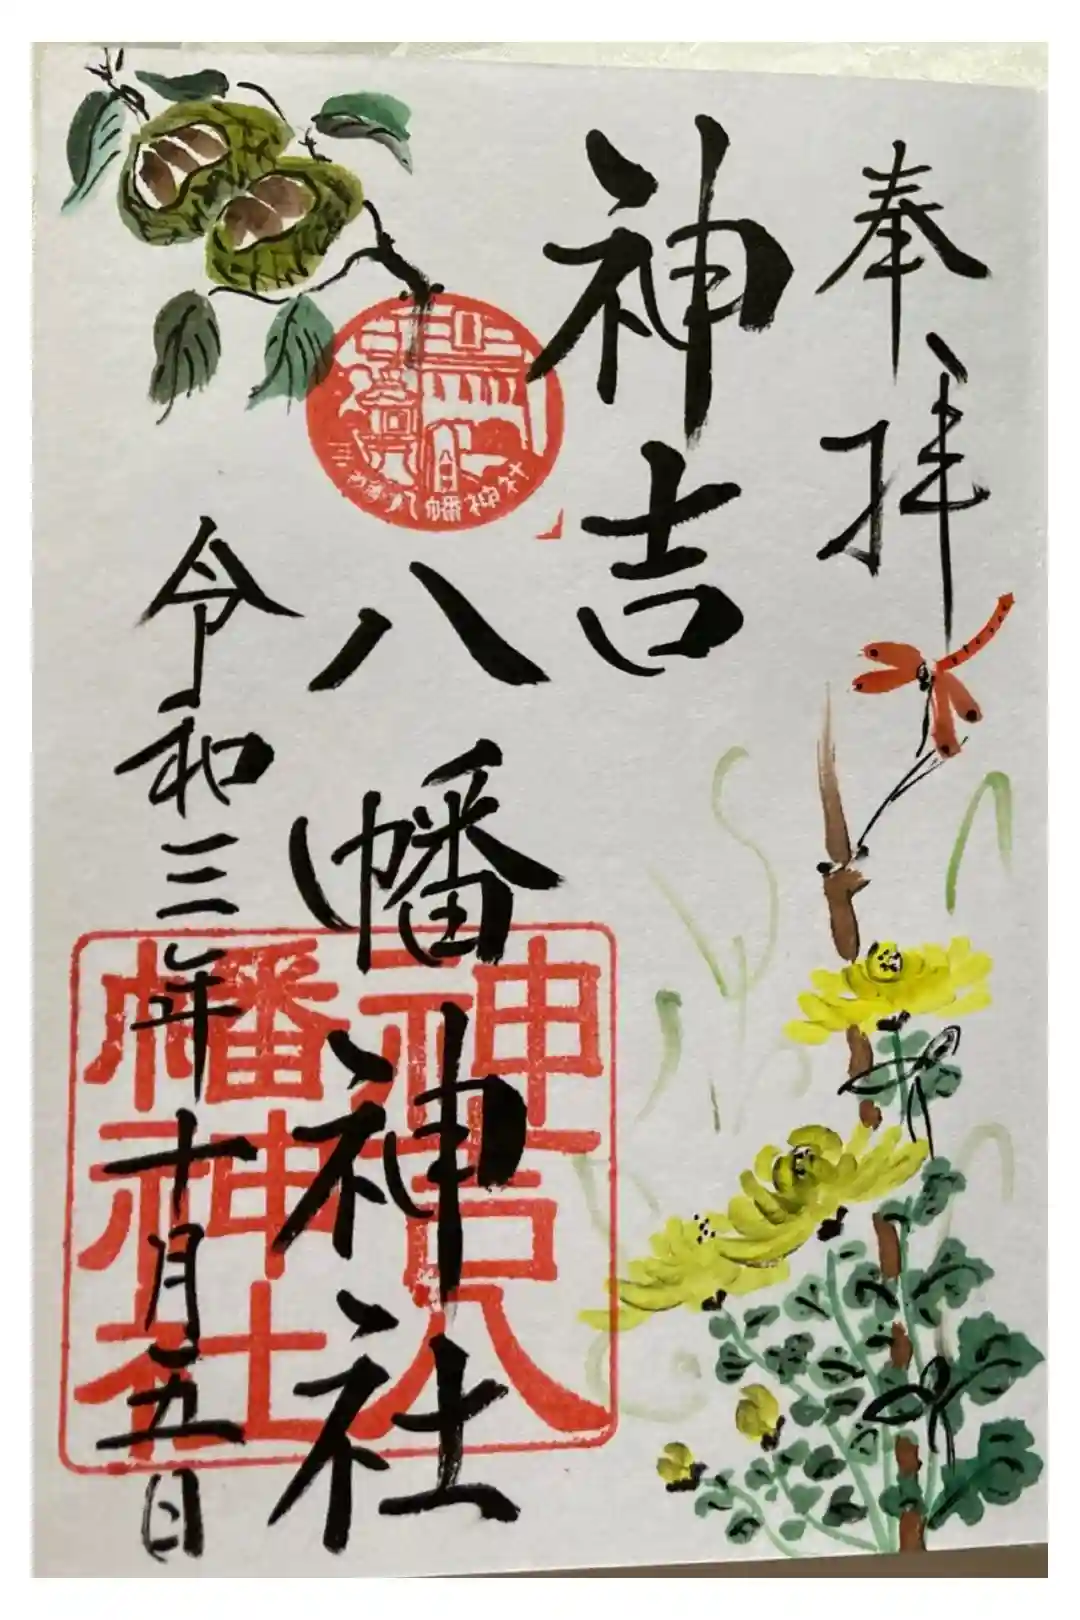 奉拝
神吉
八幡神社
令和三年十月五日
神吉八
幡神社
八幡神社